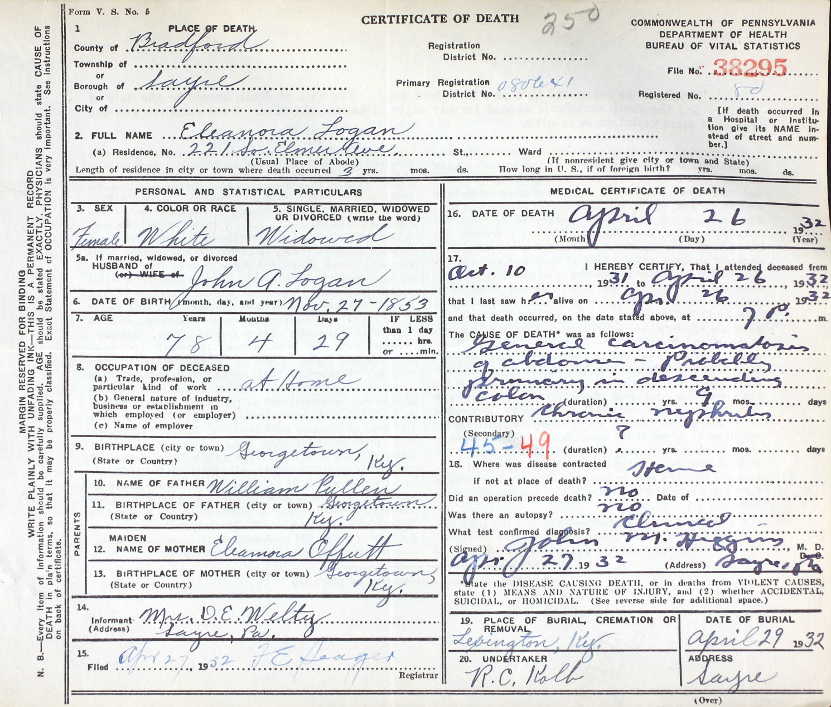 Form V. S. No. 5
CERTIFICATE OF DEATH
250
COMMONWEALTH OF PENNSYLVANIA
DEPARTMENT OF HEALTH
BUREAU OF VITAL STATISTICS
1 PLACE OF DEATH
County of Bradford
Township of
or
Borough of Sayre
or
City of
Registration
District No.
Primary Registration
District No. 080641
File No. 38295
Registered No. 80
[If death occurred in
a Hospital or Institu-
tion give its NAME in-
stead of street and num-
ber.]
2. FULL NAME Eleanora Logan
(a) Residence, No. 221 So. Elmer Ave. St., Ward
(Usual Place of Abode) (If nonresident give city or town and State)
Length of residence in city or town where death occurred 3 yrs. mos. ds. How long in U. S., if of foreign birth? yrs. mos. ds.
MARGIN RESERVED FOR BINDING
WRITE PLAINLY WITH UNFADING INK—THIS IS A PERMANENT RECORD
N. B.—Every item of information should be carefully supplied. AGE should be stated EXACTLY. PHYSICIANS should state CAUSE OF
DEATH in plain terms, so that it may be properly classified. Exact Statement of OCCUPATION is very important. See instructions
on back of certificate.
PERSONAL AND STATISTICAL PARTICULARS
3. SEX
Female
4. COLOR OR RACE
White
5. SINGLE, MARRIED, WIDOWED
OR DIVORCED (write the word)
Widowed
5a. If married, widowed, or divorced
HUSBAND of
(or) WIFE of John A. Logan
6. DATE OF BIRTH (month, day, and year) Nov. 27-1853
7. AGE Years Months Days IF LESS
than 1 day
78 4 29 hrs.
or min.
8. OCCUPATION OF DECEASED
(a) Trade, profession, or
particular kind of work at Home
(b) General nature of industry,
business or establishment in
which employed (or employer)
(c) Name of employer
9. BIRTHPLACE (city or town) Georgetown,
(State or Country) Ky.
PARENTS
10. NAME OF FATHER William Pullen
11. BIRTHPLACE OF FATHER (city or town) Georgetown
(State or Country) Ky.
12. MAIDEN
NAME OF MOTHER Eleanora Offutt
13. BIRTHPLACE OF MOTHER (city or town) Georgetown,
(State or Country) Ky.
14.
Informant Mrs. D. E. Welty
(Address) Sayre, Pa.
15.
Filed Apr 27, 1932 F E
Registrar
MEDICAL CERTIFICATE OF DEATH
16. DATE OF DEATH April 26 1932
(Month) (Day) (Year)
17. I HEREBY CERTIFY, That I attended deceased from
Oct. 10 1931 to April 26 1932
that I last saw her alive on Apr 26 1932
and that death occurred, on the date stated above, at 7 P. m.
The CAUSE OF DEATH* was as follows:
General carcinomatosis
of abdomen - Probably
primary in descending
colon (duration) yrs. 9 mos. days
CONTRIBUTORY Chronic nephritis
(Secondary) ?
45-49 (duration) yrs. mos. days
18. Where was disease contracted
if not at place of death? Home
Did an operation precede death? no Date of
Was there an autopsy? no
What test confirmed diagnosis? Clinical
(Signed) John M. Higgins M. D.
Apr. 27 1932 (Address) Sayre, Pa
*State the DISEASE CAUSING DEATH, or in deaths from VIOLENT CAUSES,
state (1) MEANS AND NATURE OF INJURY, and (2) whether ACCIDENTAL,
SUICIDAL, or HOMICIDAL. (See reverse side for additional space.)
19. PLACE OF BURIAL, CREMATION OR
REMOVAL
Lexington, Ky.
DATE OF BURIAL
April 29 1932
20. UNDERTAKER
R. C. Kolb
ADDRESS
Sayre
(Over)